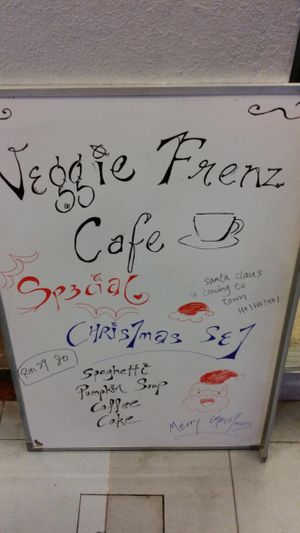 Veggie Frenz
Cafe
Special
Santa Claus
is coming to
town
Ho! Ho! Ho!
Christmas Set
Rm 29.80
Spaghetti
Pumpkin Soup
Coffee
Cake
Merry Christmas